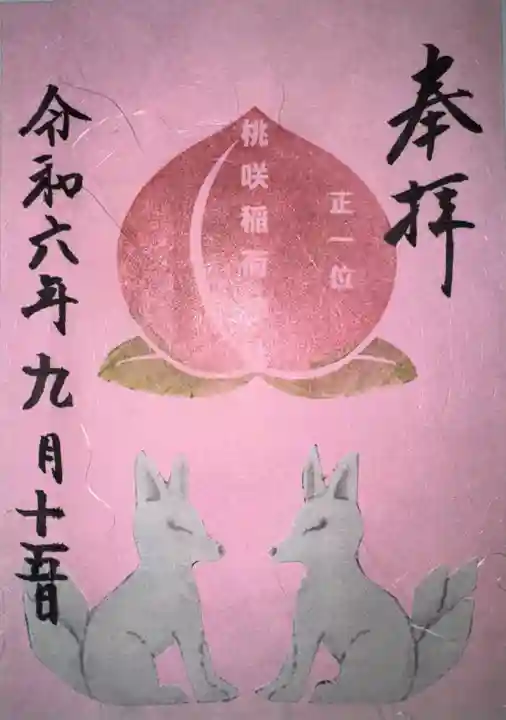 奉拝
正一位
桃咲稲荷
令和六年九月十五日